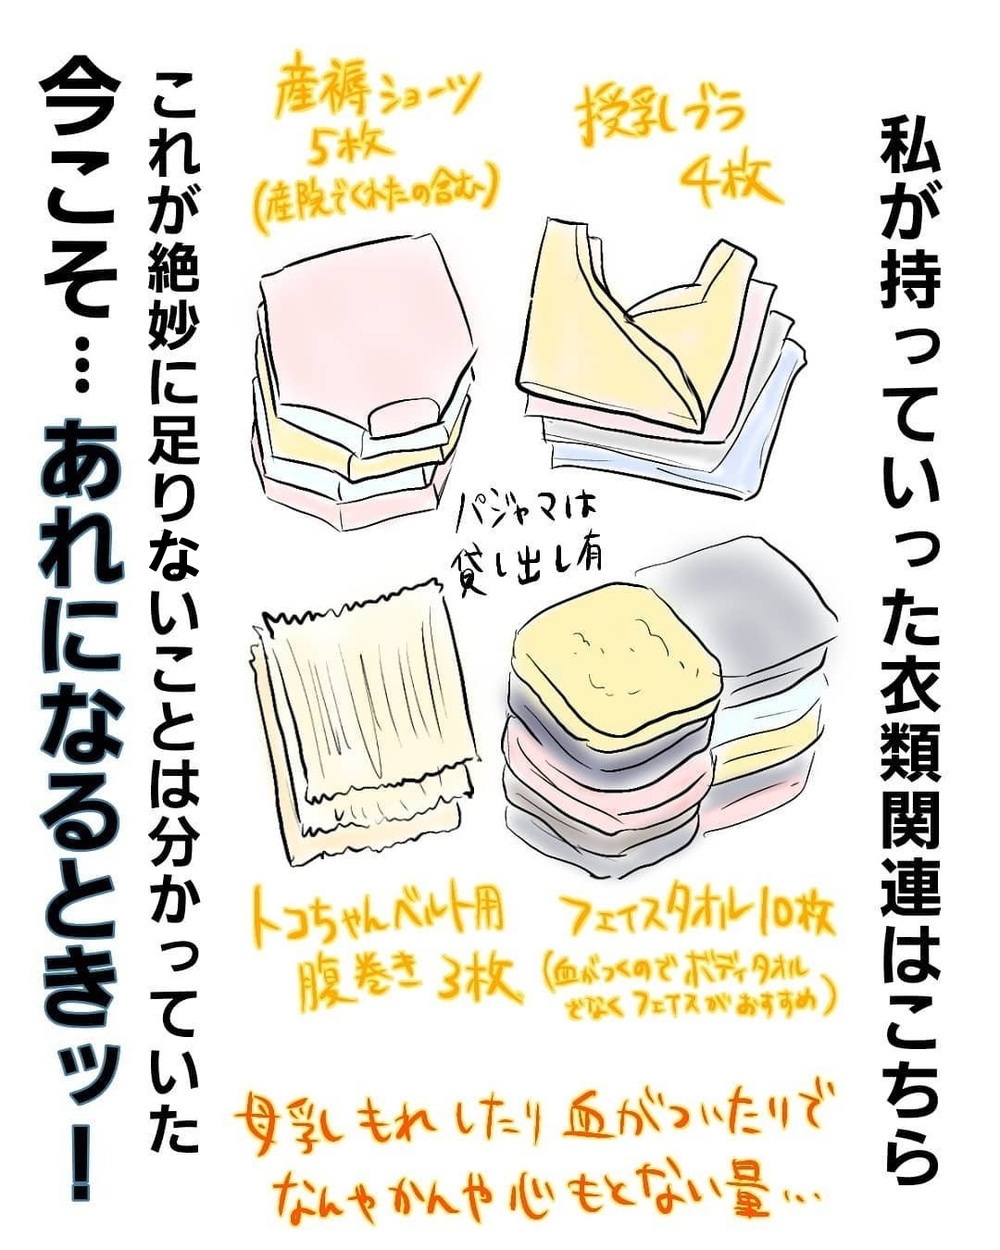 私が持っていった衣類関連はこちら
授乳ブラ
4枚
産褥ショーツ
5枚
(産院でくれたの含む)
パジャマは
貸し出し有
フェイスタオル10枚
(血がつくのでボディタオル
でなくフェイスがおすすめ)
トコちゃんベルト用
腹巻き 3枚
母乳もれしたり血がついたりで
なんやかんや心もとない量…
これが絶妙に足りないことは分かっていた
今こそ…あれになるときッ!